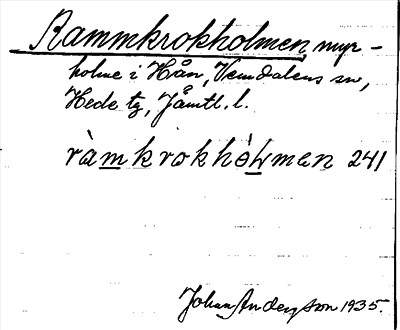 Rammkrokholmen, myr-
holme i Hån, Vemdalens sn,
Hede tg, Jämtl. l.
ràmkrokhòLmen 241
Johan Anderson 1935.